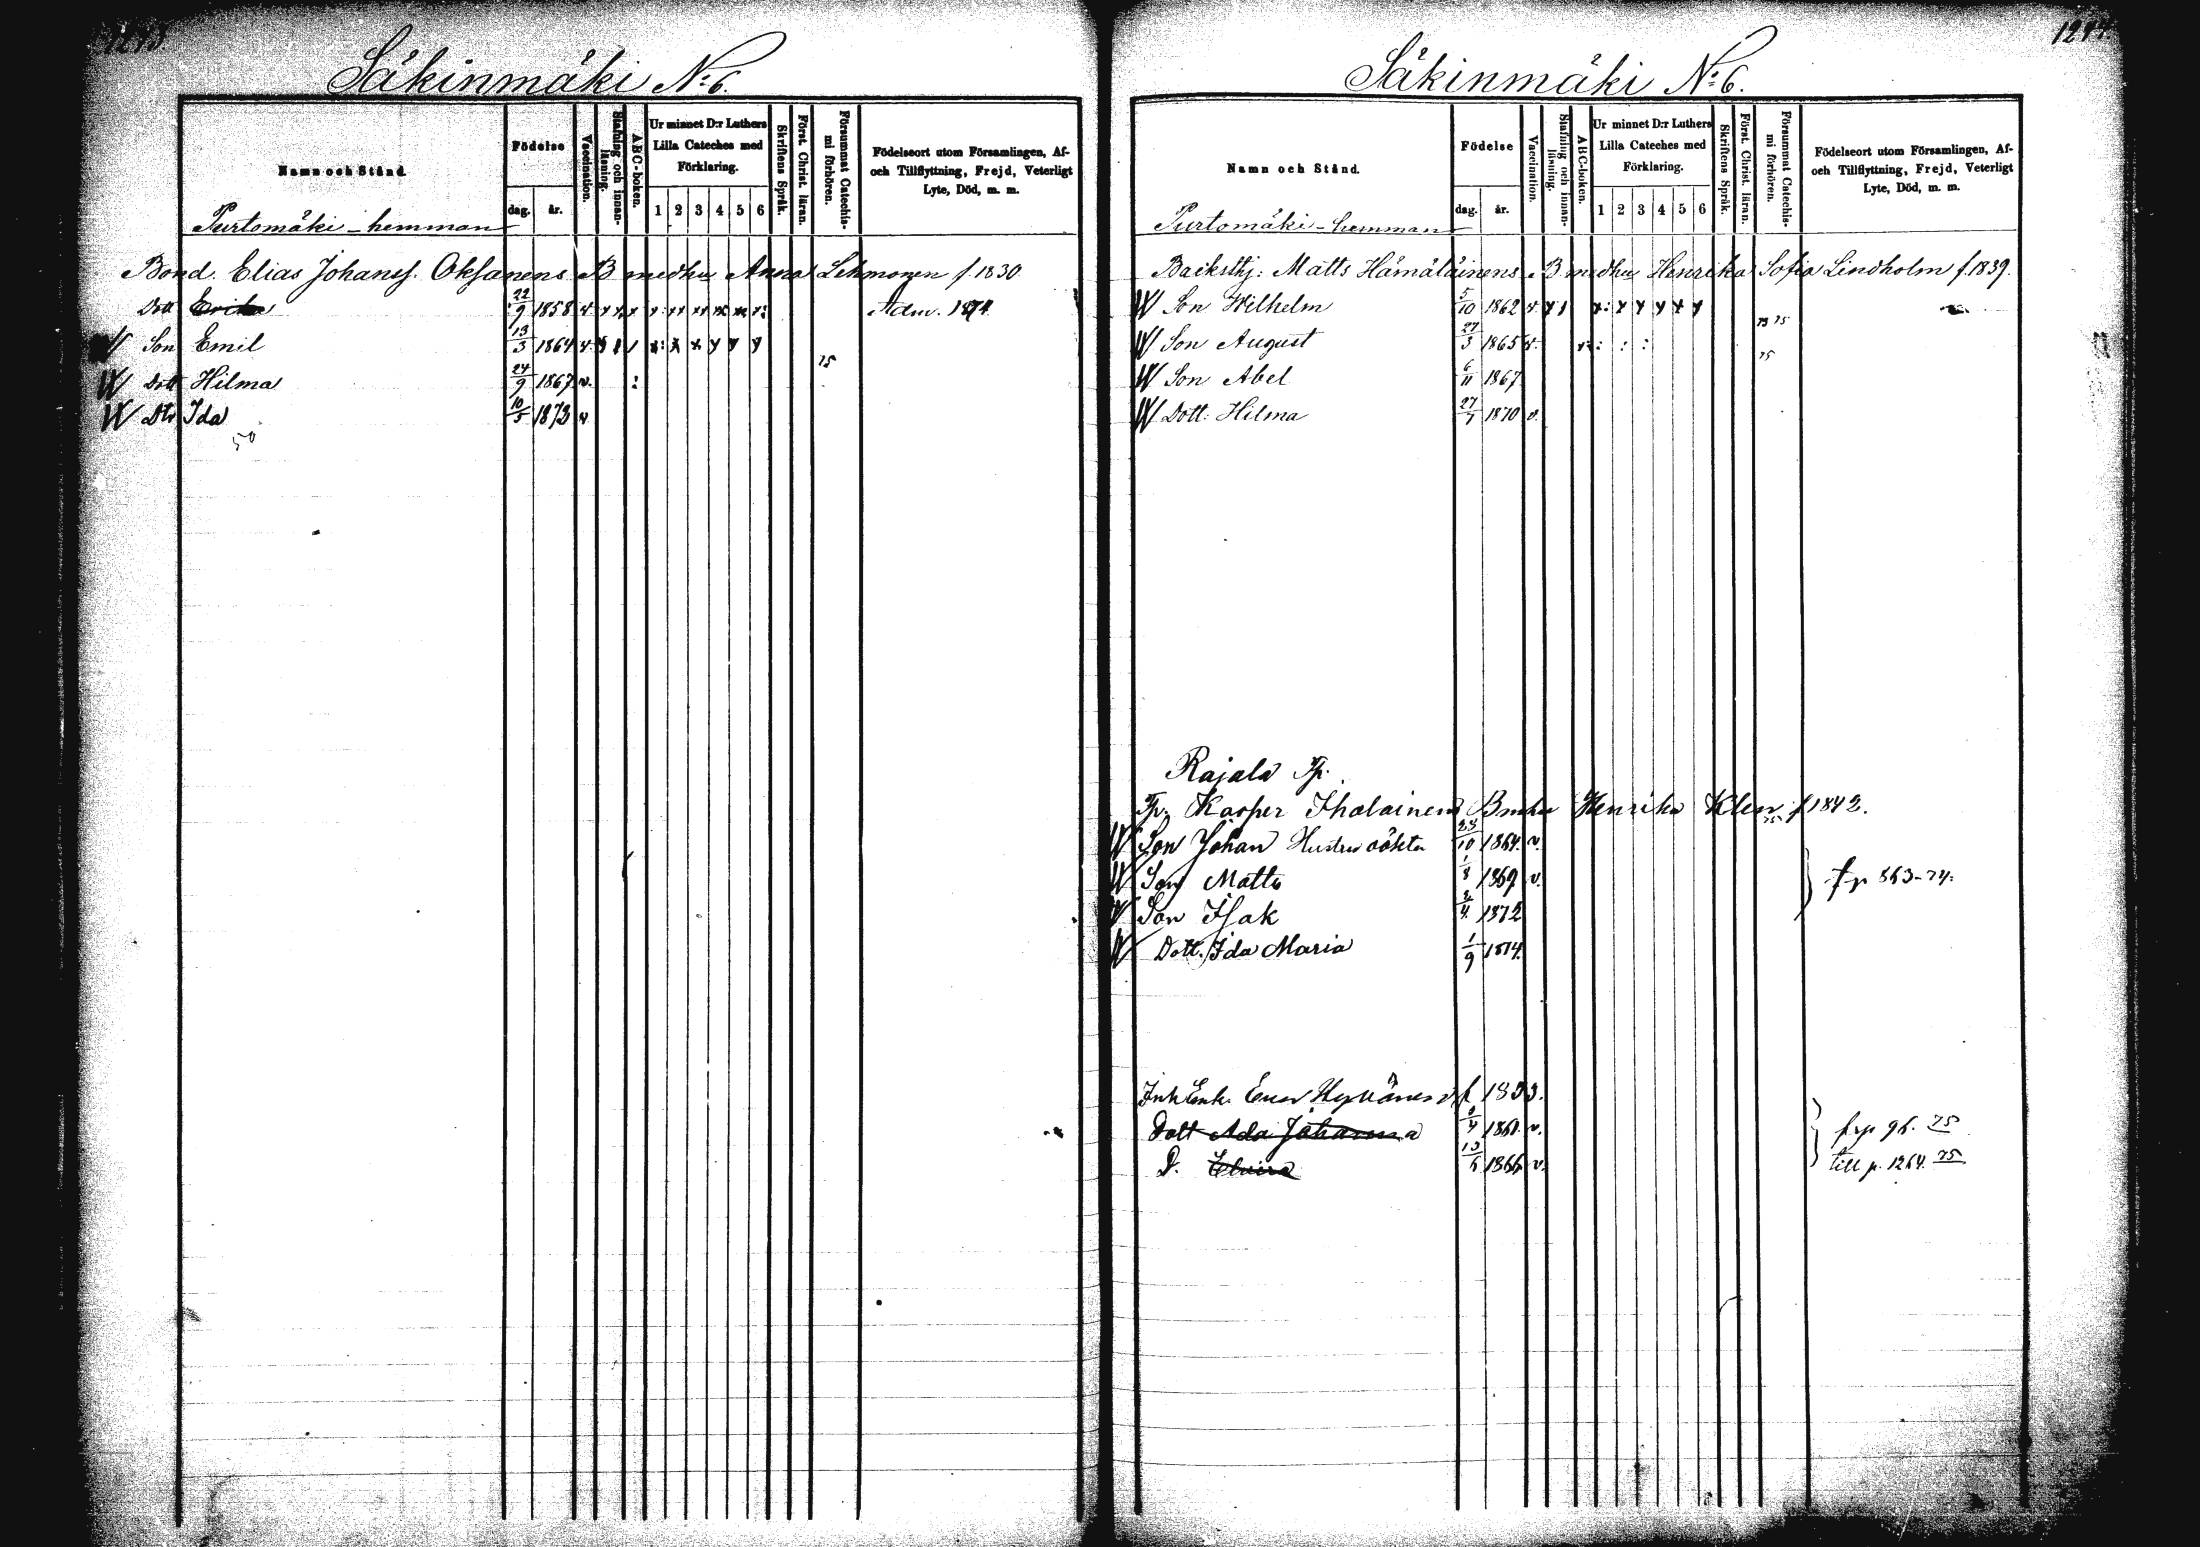 1243
Säkinmäki No 6.
Namn och Stånd.
Födelse
dag.
år.
Vaccination.
Stafning och innan-
läsning.
ABC-boken.
Ur minnet D:r Luthers
Lilla Cateches med
Förklaring.
1 2 3 4 5 6
Skriftens Språk.
Först. Christ. läran.
Försummat Catechis-
mi förhören.
Födelseort utom Församlingen, Af-
och Tillflyttning, Frejd, Veterligt
Lyte, Död, m. m.
Purtomäki - hemman
Bond. Elias Johansf. Oksanens B medhu Anna Lehmonen f. 1830
Dott Erika 22/9 1858 v. Adm. 1874
Son Emil 13/3 1864 v. 75
Dott Hilma 24/9 1867 v.
Dtr Ida 10/5 1873 v
50
Säkinmäki No 6.
Namn och Stånd.
Födelse
dag.
år.
Vaccination.
Stafning och innan-
läsning.
ABC-boken.
Ur minnet D:r Luthers
Lilla Cateches med
Förklaring.
1 2 3 4 5 6
Skriftens Språk.
Först. Christ. läran.
Försummat Catechis-
mi förhören.
Födelseort utom Församlingen, Af-
och Tillflyttning, Frejd, Veterligt
Lyte, Död, m. m.
Purtomäki - hemman
Backsthj: Matts Hämäläinens B medhu Henrika Sofia Lindholm f. 1839.
Son Wilhelm 5/10 1862 v. 73 75
Son August 27/3 1865 v. 75
Son Abel 6/11 1867
Dott: Hilma 27/7 1870 v.
Rajala Tp.
Tp. Kasper Ihalainens Bmhu Henrika Klen f 1842.
Son Johan Hustru 23/10 1864. v.
Son Matts 1/8 1869 v. fr p 563-74.
Son Isak 1872
Dott. Ida Maria 1/9 1874.
Inh Enk. Eva f 1833.
Dott Ada Johanna 1861. v. fr p 96. 75
D. Elvira 13 1866 v. till p. 1264. 75